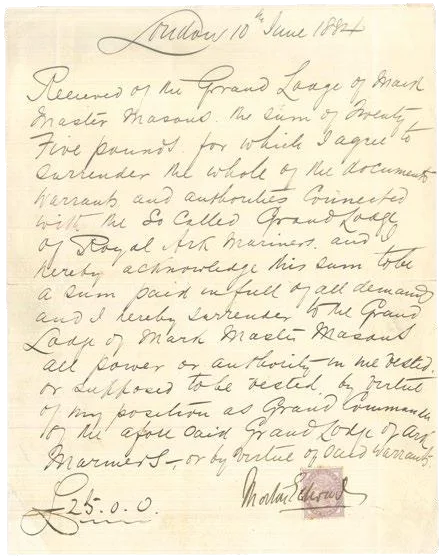 London 10th June 1884
Received of the Grand Lodge of Mark
Master Masons. the sum of Twenty
Five pounds. for which I agree to
surrender the whole of the documents
warrants and authorities connected
with the So Called Grand Lodge
of Royal Ark Mariners. and I
hereby acknowledge this sum to be
a sum paid in full of all demands
and I hereby surrender to the Grand
Lodge of Mark Master Masons
all power or authority in me vested.
or supposed to be vested by virtue
of my position as Grand Commander
of the afore said Grand Lodge of Ark
Mariners - or by virtue of said warrants.
£25.0.0.
Morton Edwards